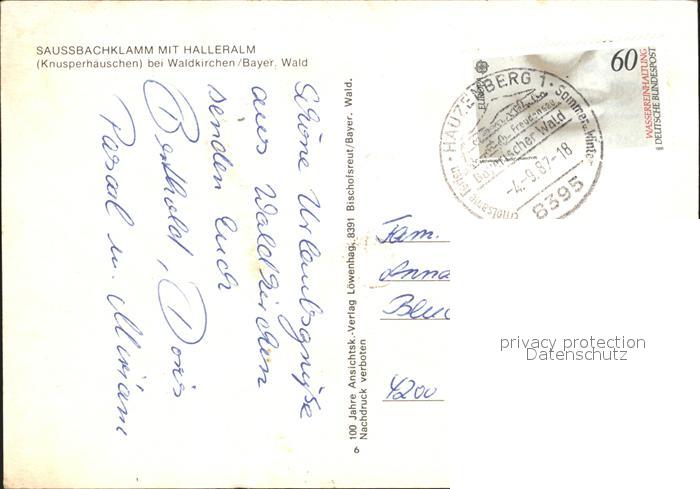 SAUSSBACHKLAMM MIT HALLERALM
(Knusperhäuschen) bei Waldkirchen/Bayer. Wald
Schöne Urlaubsgrüße
aus Waldkirchen
senden Euch
Berthold, Doris
Pascal u. Miriam
100 Jahre Ansichtsk.-Verlag Löwenhag, 8391 Bischofsreut/Bayer. Wald.
Nachdruck verboten
6
EUROPA
60
WASSERREINHALTUNG
DEUTSCHE BUNDESPOST
HAUZENBERG 1 · Sommer- Winter
Freudensee
Bayerischer Wald
-4.-9.87-18
8395
Fam.
Anna
4200
privacy protection
Datenschutz